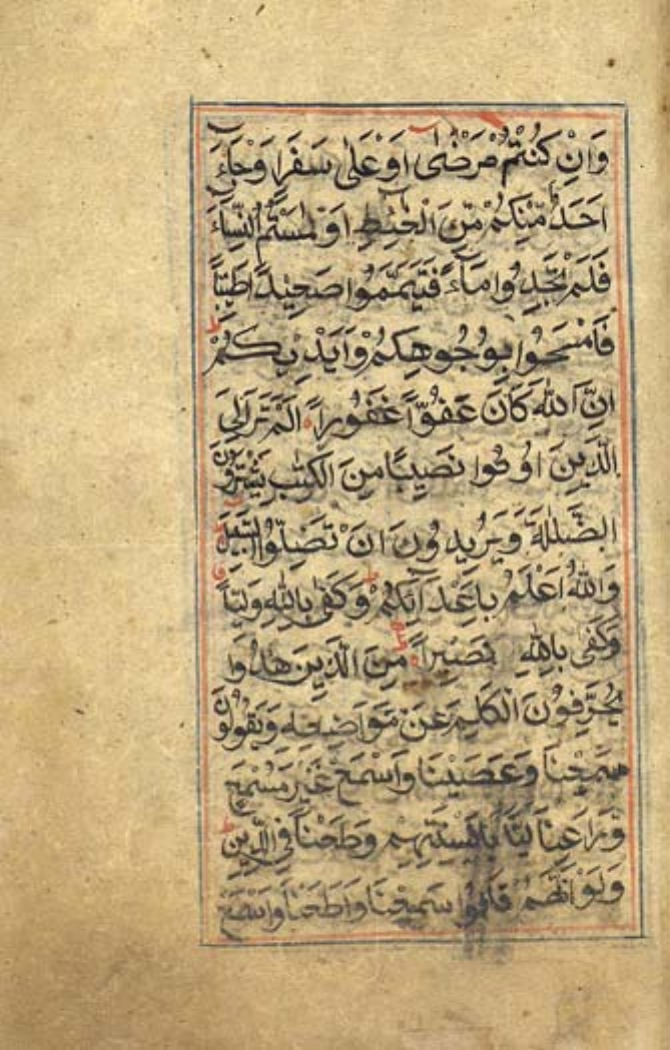 وَاِنْ كُنْتُمْ مَرْضٰى اَوْ عَلٰى سَفَرٍ اَوْ جَاءَ
اَحَدٌ مِّنْكُمْ مِّنَ الْغَائِطِ اَوْ لٰمَسْتُمُ النِّسَاءَ
فَلَمْ تَجِدُوا مَاءً فَتَيَمَّمُوا صَعِيْدًا طَيِّبًا
فَامْسَحُوا بِوُجُوهِكُمْ وَاَيْدِيكُمْ ط
اِنَّ اللهَ كَانَ عَفُوًّا غَفُورًا اَلَمْ تَرَ اِلَى
الَّذِينَ اُوتُوا نَصِيبًا مِنَ الْكِتٰبِ يَشْتَرُونَ
الضَّلٰلَةَ وَيُرِيدُونَ اَنْ تَضِلُّوا السَّبِيلَ
وَاللهُ اَعْلَمُ بِاَعْدَائِكُمْ ط وَكَفٰى بِاللهِ وَلِيًّا
وَكَفٰى بِاللهِ نَصِيرًا مِنَ الَّذِينَ هَادُوا
يُحَرِّفُونَ الْكَلِمَ عَنْ مَوَاضِعِهٖ وَيَقُولُونَ
سَمِعْنَا وَعَصَيْنَا وَاسْمَعْ غَيْرَ مُسْمَعٍ
وَرَاعِنَا لَيًّا بِاَلْسِنَتِهِمْ وَطَعْنًا فِى الدِّينِ ط
وَلَوْ اَنَّهُمْ قَالُوا سَمِعْنَا وَاَطَعْنَا وَاسْمَعْ